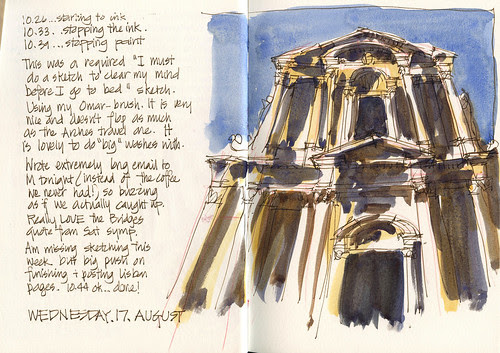 10.26...starting to ink
10.33. stopping the ink..
10.39...stopping paint
This was a required "I must
do a sketch to clear my mind
before I go to bed" sketch.
Using my Omar-brush. It is very
nice and doesn't flop as much
as the Arches travel one. It
is lovely to do "big" washes with.
Wrote extremely long email to
M tonight (instead of the coffee
we never had!) so buzzing
as if we actually caught up.
Really LOVE the Bridges
quote from Sat symp.
Am missing sketching this
week but big push on
finishing + posting Lisbon
pages. 10.44 ok... done!
WEDNESDAY. 17. AUGUST